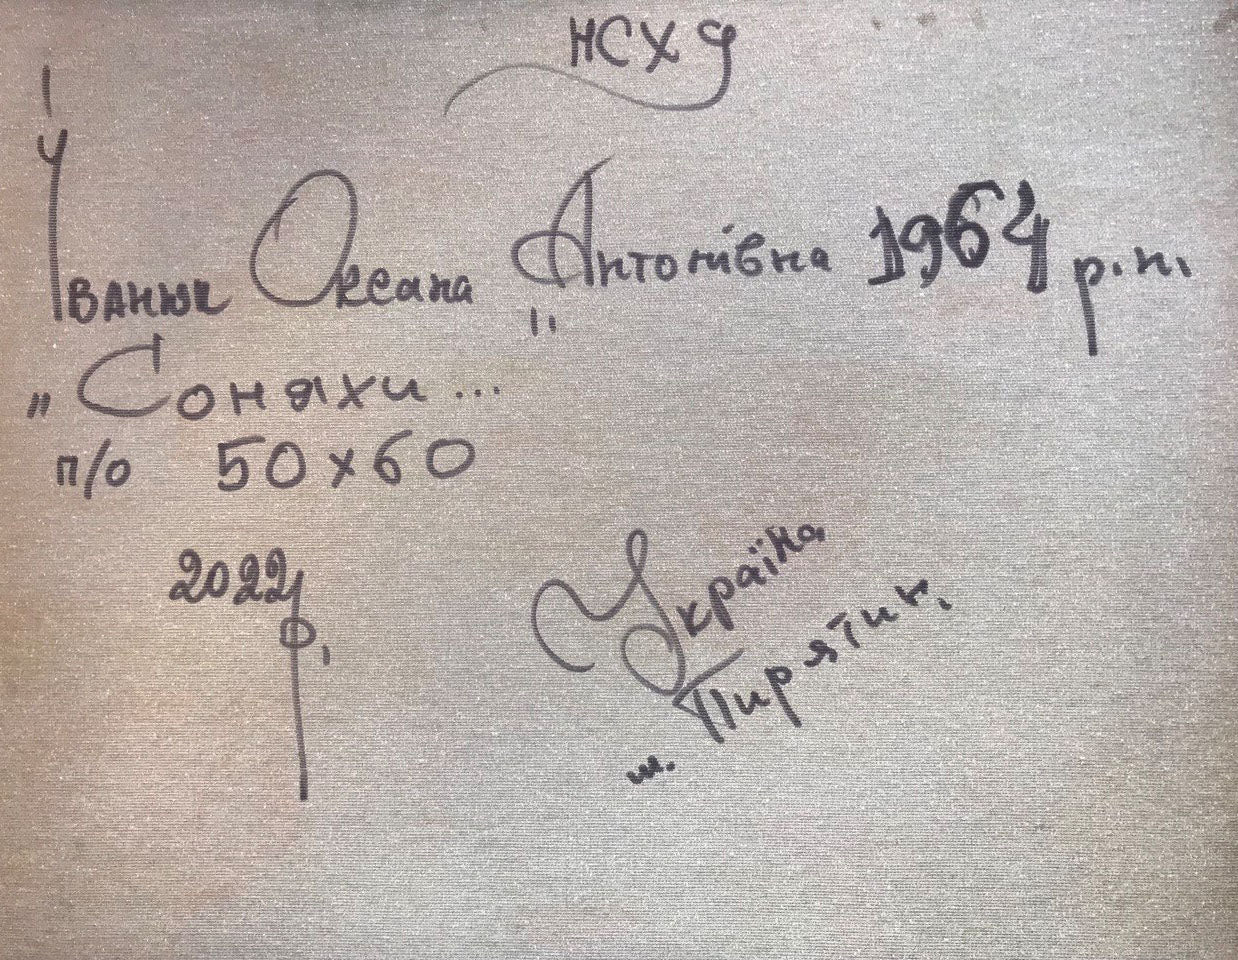 НСХУ
Іванюк Оксана Антонівна 1964 р.н.
"Соняхи..."
п/о 50х60
2022р.
Україна
м. Пирятин.